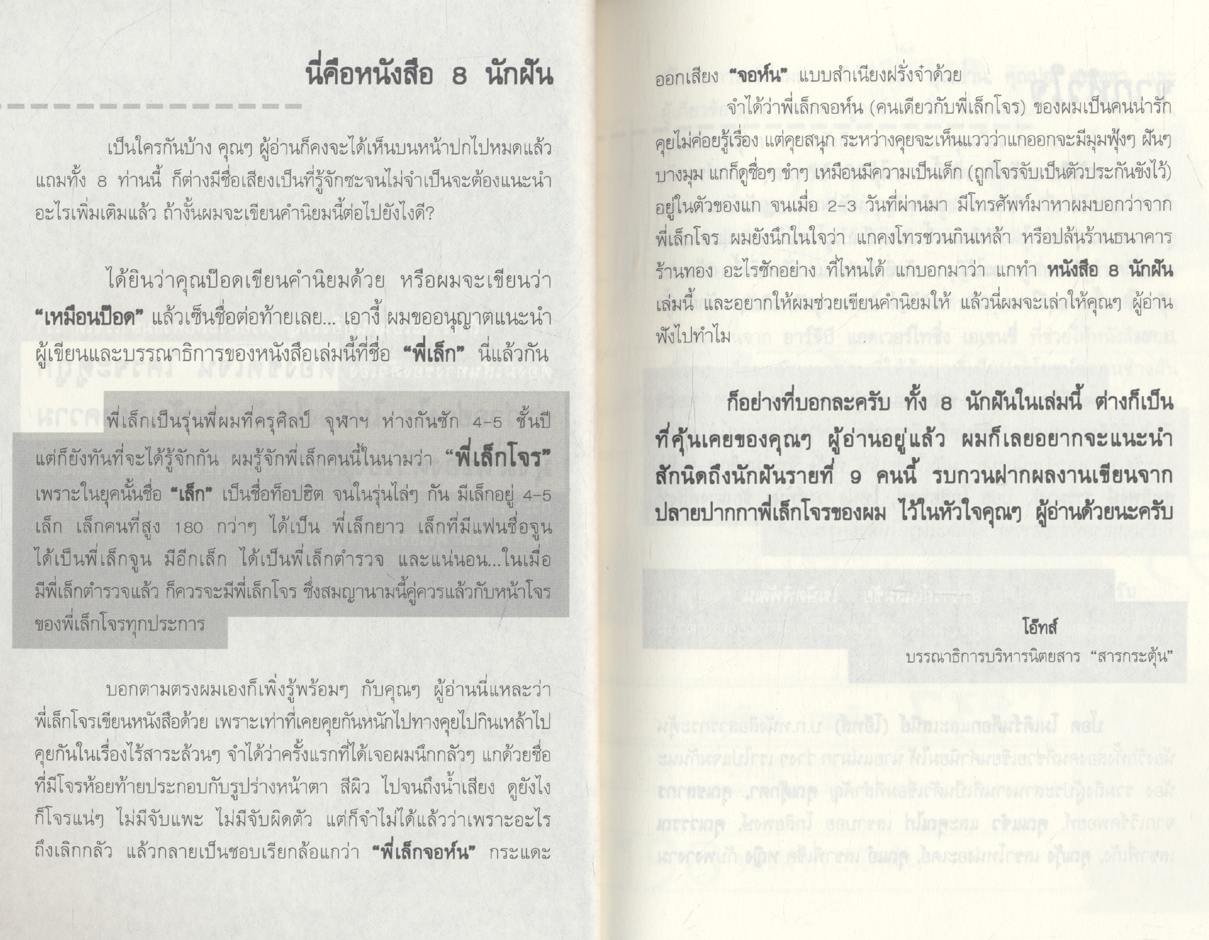 นี่คือหนังสือ 8 นักฝัน
เป็นใครกันบ้าง คุณๆ ผู้อ่านก็คงจะได้เห็นบนหน้าปกไปหมดแล้ว
แถมทั้ง 8 ท่านนี้ ก็ต่างมีชื่อเสียงเป็นที่รู้จักซะจนไม่จำเป็นจะต้องแนะนำ
อะไรเพิ่มเติมแล้ว ถ้างั้นผมจะเขียนคำนิยมนี้ต่อไปยังไงดี?
ได้ยินว่าคุณป๊อดเขียนคำนิยมด้วย หรือผมจะเขียนว่า
“เหมือนป๊อด” แล้วเซ็นชื่อต่อท้ายเลย... เอางี้ ผมขออนุญาตแนะนำ
ผู้เขียนและบรรณาธิการของหนังสือเล่มนี้ที่ชื่อ “พี่เล็ก” นี่แล้วกัน
พี่เล็กเป็นรุ่นพี่ผมที่ครุศิลป์ จุฬาฯ ห่างกันซัก 4-5 ชั้นปี
แต่ก็ยังทันที่จะได้รู้จักกัน ผมรู้จักพี่เล็กคนนี้ในนามว่า “พี่เล็กโจร”
เพราะในยุคนั้นชื่อ “เล็ก” เป็นชื่อท็อปฮิต จนในรุ่นไล่ๆ กัน มีเล็กอยู่ 4-5
เล็ก เล็กคนที่สูง 180 กว่าๆ ได้เป็น พี่เล็กยาว เล็กที่มีแฟนชื่อจูน
ได้เป็นพี่เล็กจูน มีอีกเล็ก ได้เป็นพี่เล็กตำรวจ และแน่นอน...ในเมื่อ
มีพี่เล็กตำรวจแล้ว ก็ควรจะมีพี่เล็กโจร ซึ่งสมญานามนี้คู่ควรแล้วกับหน้าโจร
ของพี่เล็กโจรทุกประการ
บอกตามตรงผมเองก็เพิ่งรู้พร้อมๆ กับคุณๆ ผู้อ่านนี่แหละว่า
พี่เล็กโจรเขียนหนังสือด้วย เพราะเท่าที่เคยคุยกันหนักไปทางคุยไปกินเหล้าไป
คุยกันในเรื่องไร้สาระล้วนๆ จำได้ว่าครั้งแรกที่ได้เจอผมนึกกลัวๆ แกด้วยชื่อ
ที่มีโจรห้อยท้ายประกอบกับรูปร่างหน้าตา สีผิว ไปจนถึงน้ำเสียง ดูยังไง
ก็โจรแน่ๆ ไม่มีจับแพะ ไม่มีจับผิดตัว แต่ก็จำไม่ได้แล้วว่าเพราะอะไร
ถึงเลิกกลัว แล้วกลายเป็นชอบเรียกล้อแกว่า “พี่เล็กจอห์น” กระแดะ
ออกเสียง “จอห์น” แบบสำเนียงฝรั่งจ๋าด้วย
จำได้ว่าพี่เล็กจอห์น (คนเดียวกับพี่เล็กโจร) ของผมเป็นคนน่ารัก
คุยไม่ค่อยรู้เรื่อง แต่คุยสนุก ระหว่างคุยจะเห็นแววว่าแกออกจะมีมุมฟุ้งๆ ฝันๆ
บางมุม แกก็ดูซื่อๆ ขำๆ เหมือนมีความเป็นเด็ก (ถูกโจรจับเป็นตัวประกันขังไว้)
อยู่ในตัวของแก จนเมื่อ 2-3 วันที่ผ่านมา มีโทรศัพท์มาหาผมบอกว่าจาก
พี่เล็กโจร ผมยังนึกในใจว่า แกคงโทรชวนกินเหล้า หรือปล้นร้านธนาคาร
ร้านทอง อะไรซักอย่าง ที่ไหนได้ แกบอกมาว่า แกทำ หนังสือ 8 นักฝัน
เล่มนี้ และอยากให้ผมช่วยเขียนคำนิยมให้ แล้วนี่ผมจะเล่าให้คุณๆ ผู้อ่าน
ฟังไปทำไม
ก็อย่างที่บอกละครับ ทั้ง 8 นักฝันในเล่มนี้ ต่างก็เป็น
ที่คุ้นเคยของคุณๆ ผู้อ่านอยู่แล้ว ผมก็เลยอยากจะแนะนำ
สักนิดถึงนักฝันรายที่ 9 คนนี้ รบกวนฝากผลงานเขียนจาก
ปลายปากกาพี่เล็กโจรของผม ไว้ในหัวใจคุณๆ ผู้อ่านด้วยนะครับ
โอ๊ทส์
บรรณาธิการบริหารนิตยสาร “สารกระตุ้น”